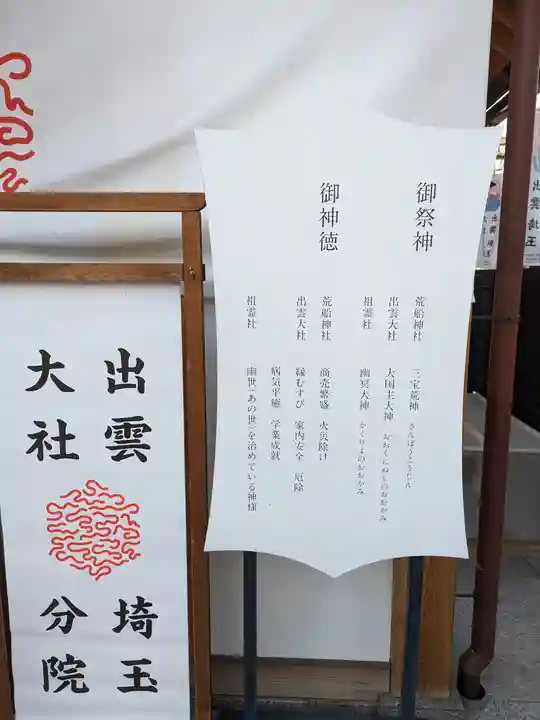 御祭神
荒船神社 三宝荒神 さんぽうこうじん
出雲大社 大国主大神 おおくにぬしのおおかみ
祖霊社 幽冥大神 かくりよのおおかみ
御神徳
荒船神社 商売繁盛 火災除け
出雲大社 縁むすび 家内安全 厄除
病気平癒 学業成就
祖霊社 幽世(あの世)を治めている神様
出雲
大社
埼玉
分院
出雲
埼玉